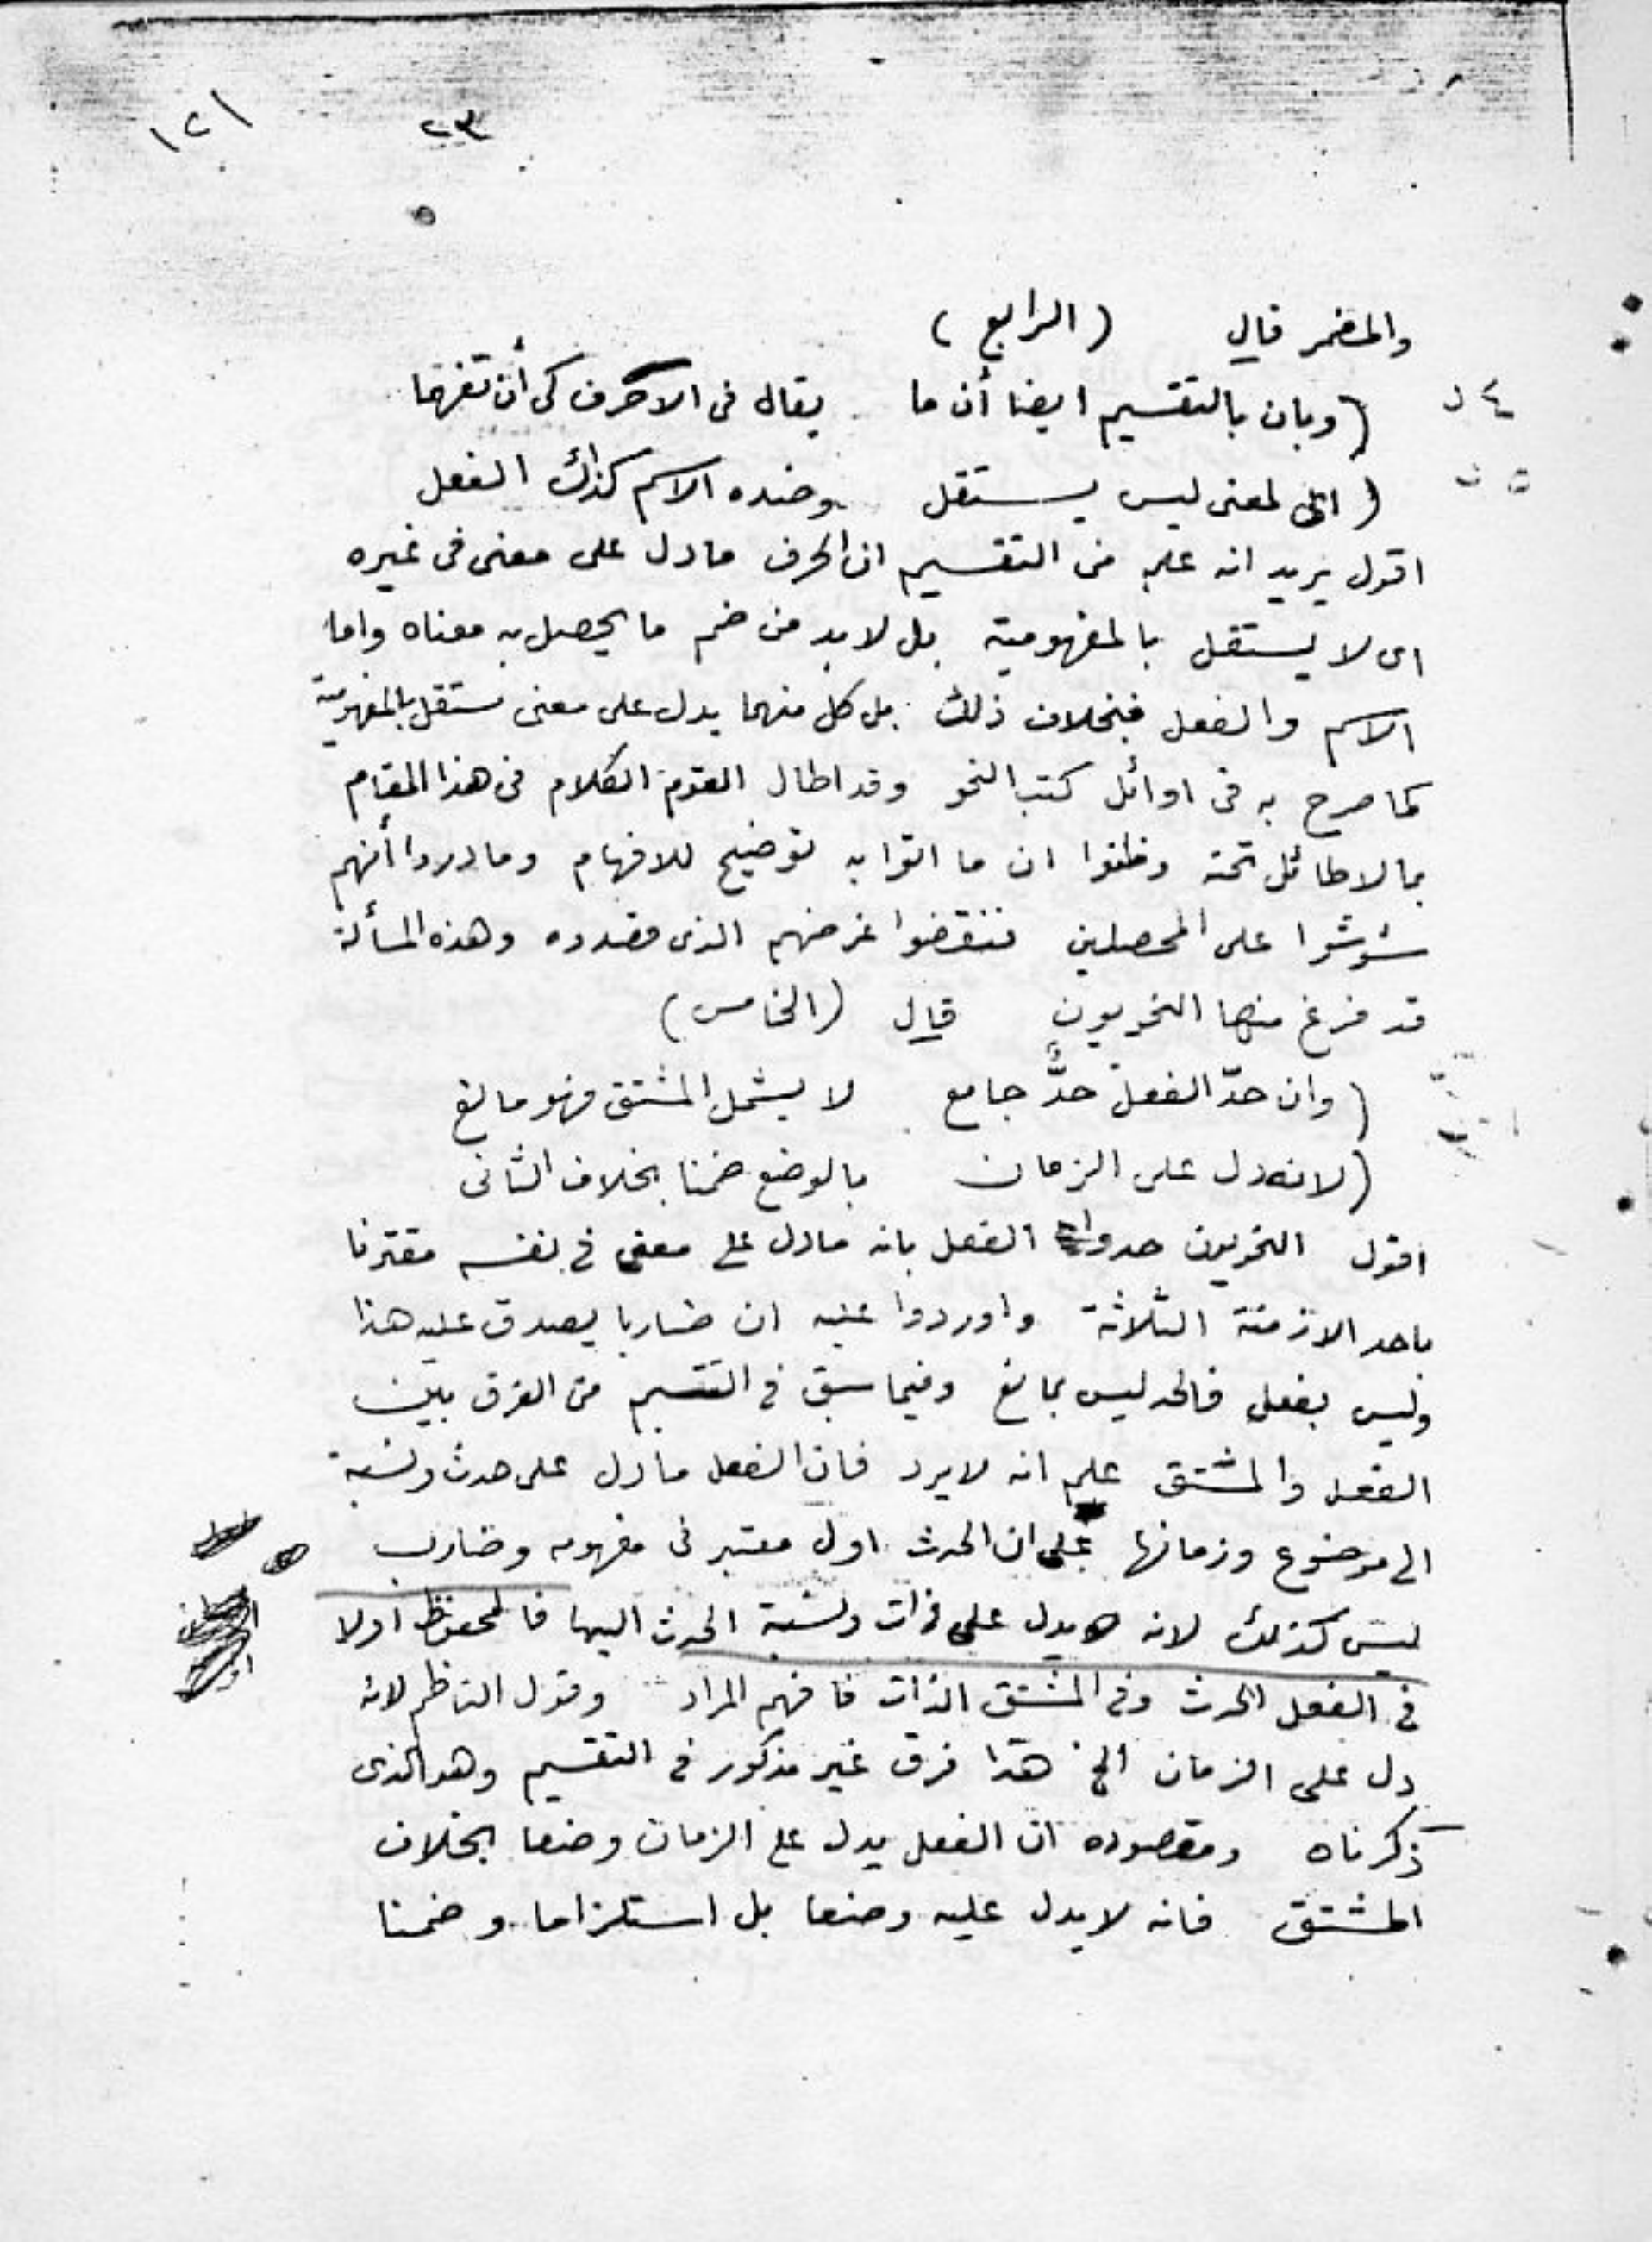 ١٢١
٢٣
والمضمر قال (الرابع)
(وبان بالتقسيم ايضا أن ما يقال فى الاحرف كى أن تفهما
(اتى لمعنى ليس يستقل وضده الاسم كذاك الفعل
اقول يريد انه علم من التقسيم ان الحرف مادل على معنى فى غيره
اى لا يستقل بالمفهومية بل لابد من ضم ما يحصل به معناه واما
الاسم والفعل فبخلاف ذلك بل كل منهما يدل على معنى مستقل بالمفهومية
كما صرح به فى اوائل كتب النحو وقد اطال القوم الكلام فى هذا المقام
بما لا طائل تحته وظنوا ان ما اتوا به توضيح للافهام وما دروا أنهم
شوشوا على المحصلين فنقضوا غرضهم الذى قصدوه وهذه المسألة
قد فرغ منها النحويون قال (الخامس)
(وان حدّ الفعل حدٌّ جامع لا يشمل المشتق فهو مانع
(لانه دل على الزمان بالوضع ضمنا بخلاف الثانى
اقول النحويون حدوا الفعل بانه مادل على معنى فى نفسه مقترنا
باحد الازمنة الثلاثة واوردوا عليه ان ضاربا يصدق عليه هذا
وليس بفعل فالحد ليس بمانع وفيما سبق فى التقسيم من الفرق بين
الفعل والمشتق علم انه لا يرد فان الفعل مادل على حدث ونسبة
الى موضوع وزمانها على ان الحدث اول معتبر فى مفهومه وضارب
ليس كذلك لانه يدل على ذات ونسبة الحدث اليها فالملحوظ اولا
فى الفعل الحدث وفى المشتق الذات فافهم المراد وقول الناظم لانه
دل على الزمان الخ هذا فرق غير مذكور فى التقسيم وهو الذى
ذكرناه ومقصوده ان الفعل يدل على الزمان وضعا بخلاف
المشتق فانه لا يدل عليه وضعا بل استلزاما وضمنا